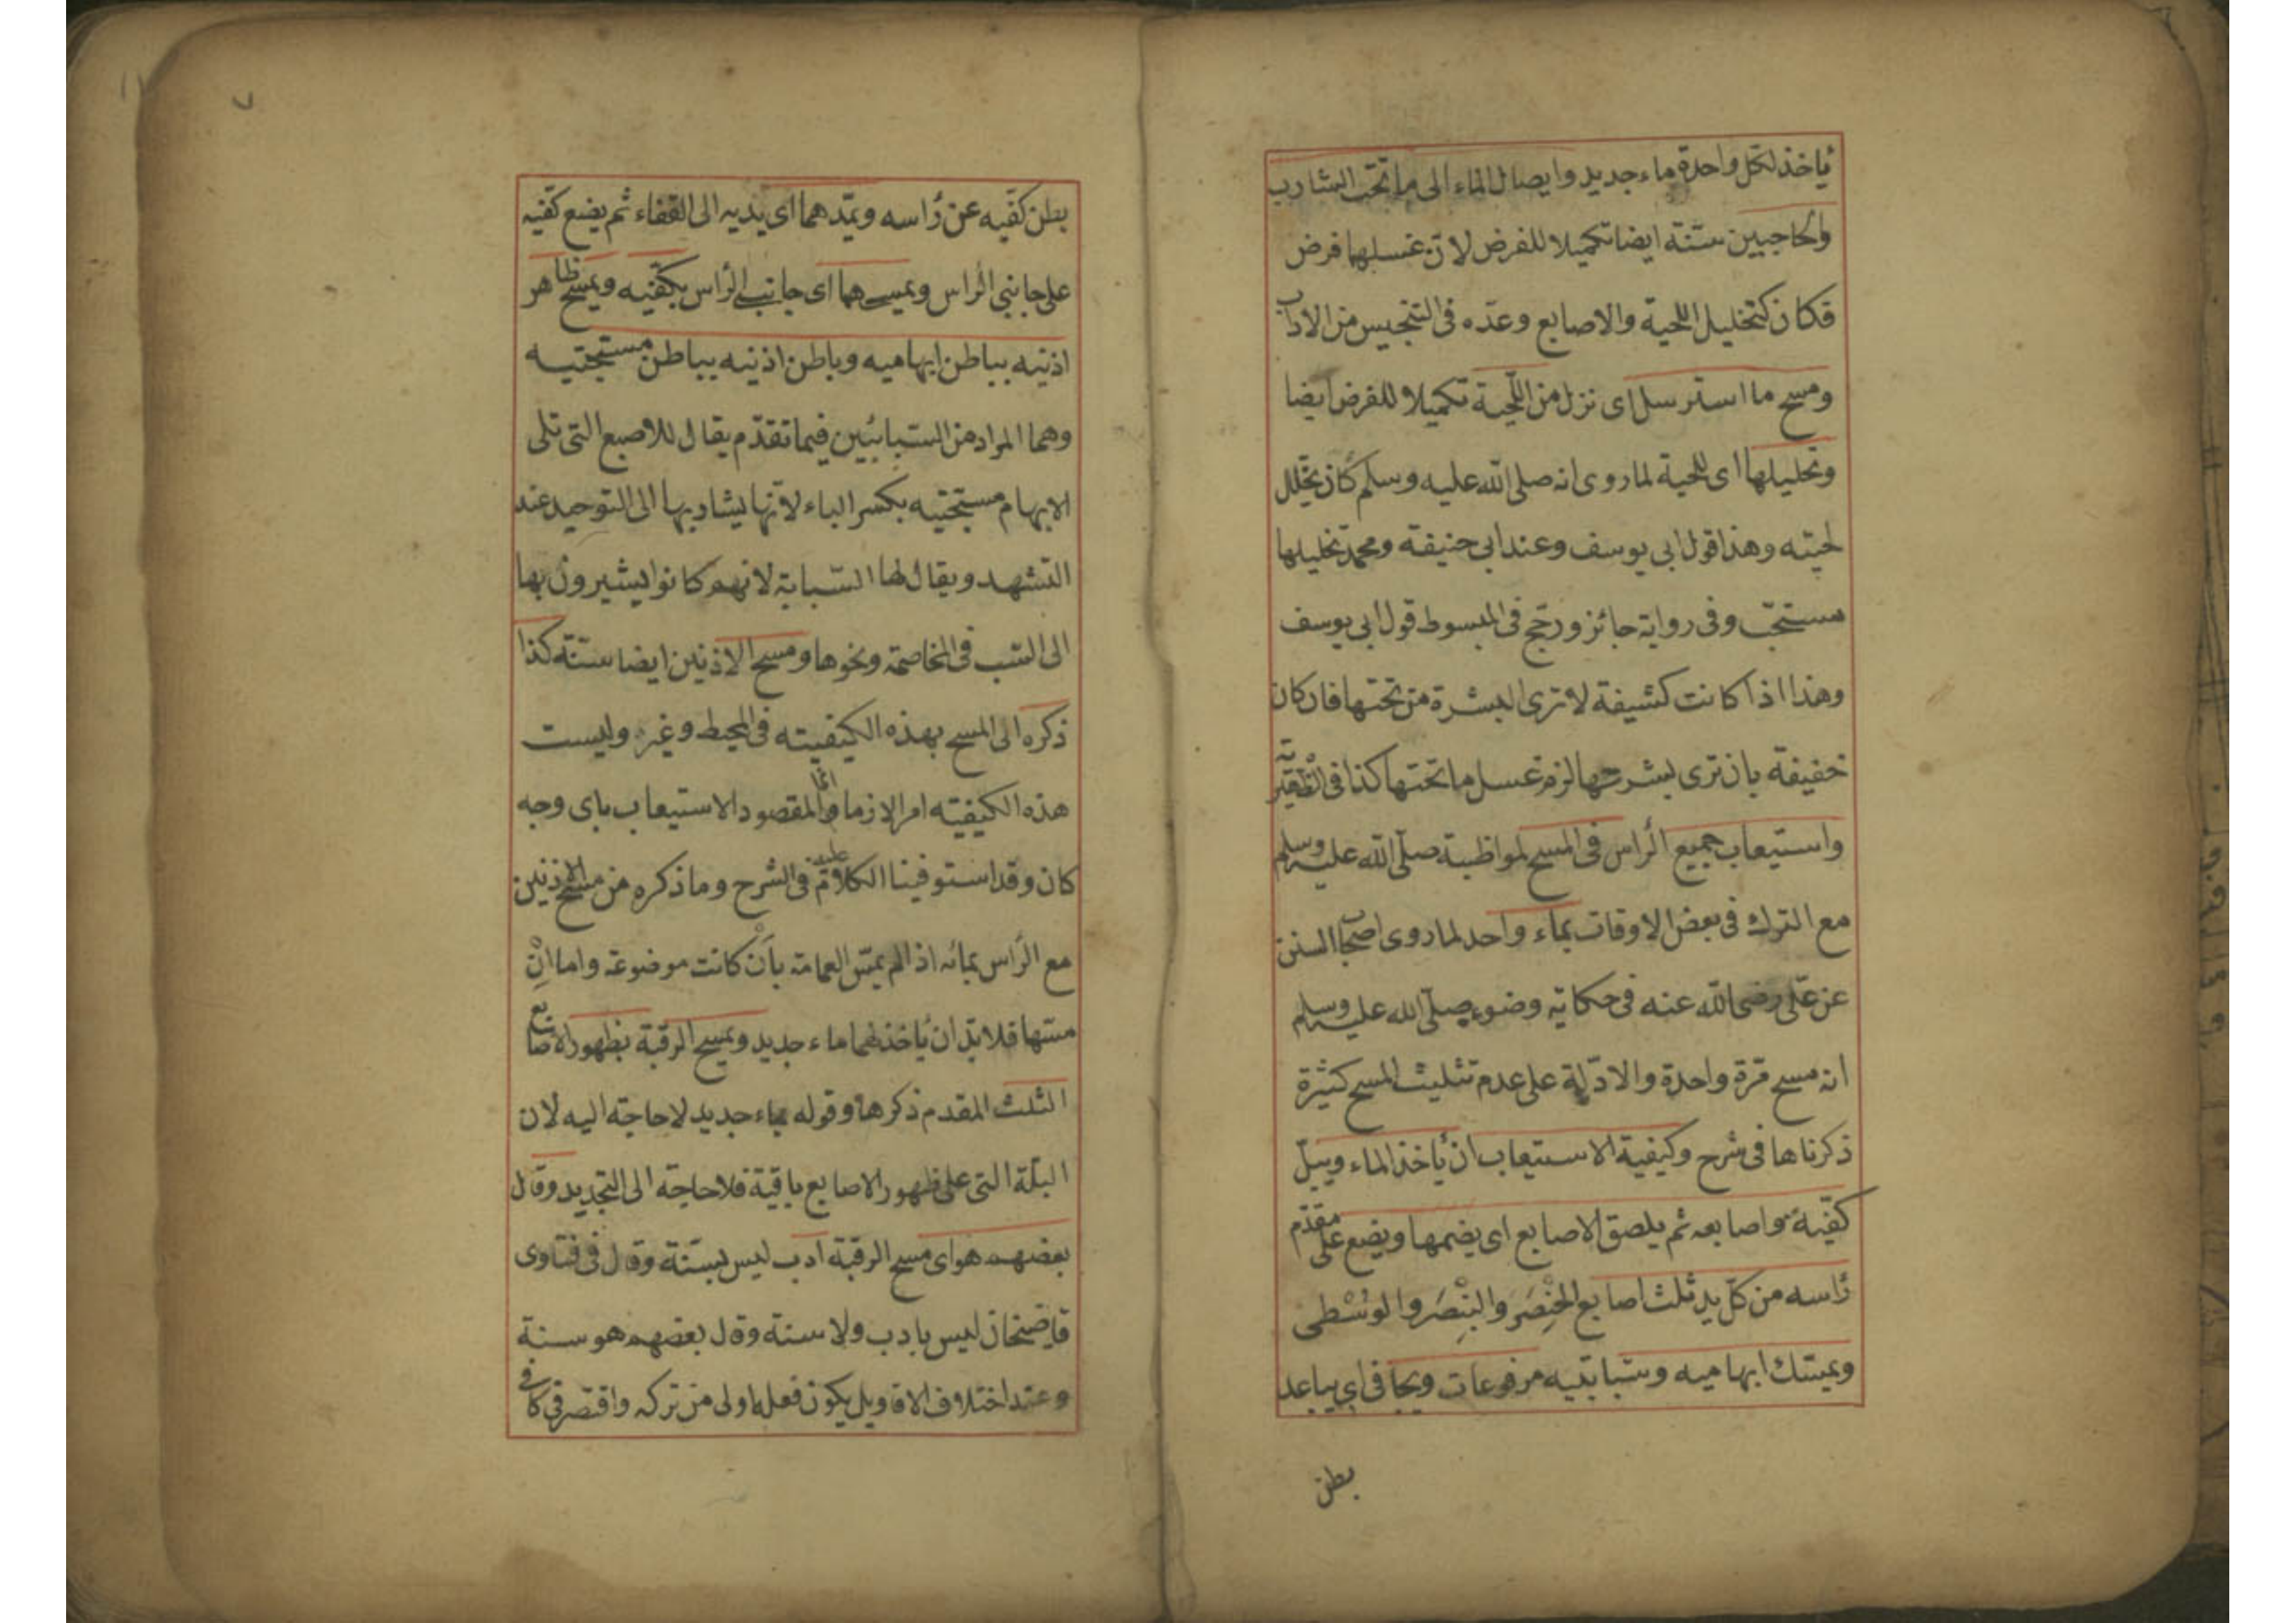 ياخذ لكل واحدة ماء جديد وايصال الماء الى ما تحت الشارب
والحاجبين سنة ايضا تكميلا للفرض لان غسلهما فرض
فكان كتخليل اللحية والاصابع وعده فى التنجيس من الاداب
ومسح ما استرسل اى نزل من اللحية تكميلا للفرض ايضا
وتحليلها اى للحية لما روى انه صلى الله عليه وسلم كان يخلل
لحيته وهذا قول ابى يوسف وعند ابى حنيفة ومحمد تخليلها
مستحب وفى رواية جائز ورجح فى المبسوط قول ابى يوسف
وهذا اذا كانت كشيفة لا ترى البشرة من تحتها فان كان
خفيفة بان ترى بشرتها لزم غسل ما تحتها كذا فى
واستيعاب جميع الرأس فى المسح لمواظبة صلى الله عليه وسلم
مع الترك فى بعض الاوقات بماء واحد لما روى اصحاب السنن
عن على رضى الله عنه فى حكاية وضوء صلى الله عليه وسلم
انه مسح مرة واحدة والادلة على عدم تثليث المسح كثيرة
ذكرناها فى شرح وكيفية الاستيعاب ان يأخذ الماء ويبل
كفيه واصابعه ثم يلصق الاصابع اى يضمها ويضع على مقدم
رأسه من كل يد ثلث اصابع الخِنْصَر والبِنْصَر والوُسْطى
ويمسك ابهاميه وسبابتيه مرفوعات ويجافى اى يباعد
بطن
٧
بطن كفيه عن رأسه ويمدهما اى يديه الى القفاء ثم يضع كفيه
على جانبى الرأس ويمسحهما اى جانبى الرأس بكفيه ويمسح ظاهر
اذنيه بباطن ابهاميه وباطن اذنيه بباطن مستجتيه
وهما المراد من السبابتين فيما تقدم يقال للاصبع التى تلى
الابهام مستجتيه بكسر الباء لانها يشار بها الى التوحيد عند
التشهد ويقال لها السبابة لانهم كانوا يشيرون بها
الى السب فى المخاصمة ونحوها ومسح الاذنين ايضا سنة كذا
ذكره الى المسح بهذه الكيفيته فى المحيط وغيره وليست
هذه الكيفيته امرا لازما وانما المقصود الاستيعاب باى وجه
كان وقد استوفينا الكلام عليه فى الشرح وما ذكره من مسح الاذنين
مع الرأس بمائه اذا لم يمس العمامة بأنْ كانت موضوعة واما انْ
مسها فلا بد ان يأخذ لهما ماء جديد ويمسح الرقبة بظهور الاصابع
الثلث المقدم ذكرها وقوله بماء جديد لا حاجة اليه لان
البلة التى على ظهور الاصابع باقية فلا حاجة الى التجديد وقال
بعضهم هو اى مسح الرقبة ادب ليس بسنة وقال فى فتاوى
قاضيخان ليس بادب ولا سنة وقال بعضهم هو سنة
وعند اختلاف الاقاويل يكون فعله اولى من تركه واقتصر فى كافى